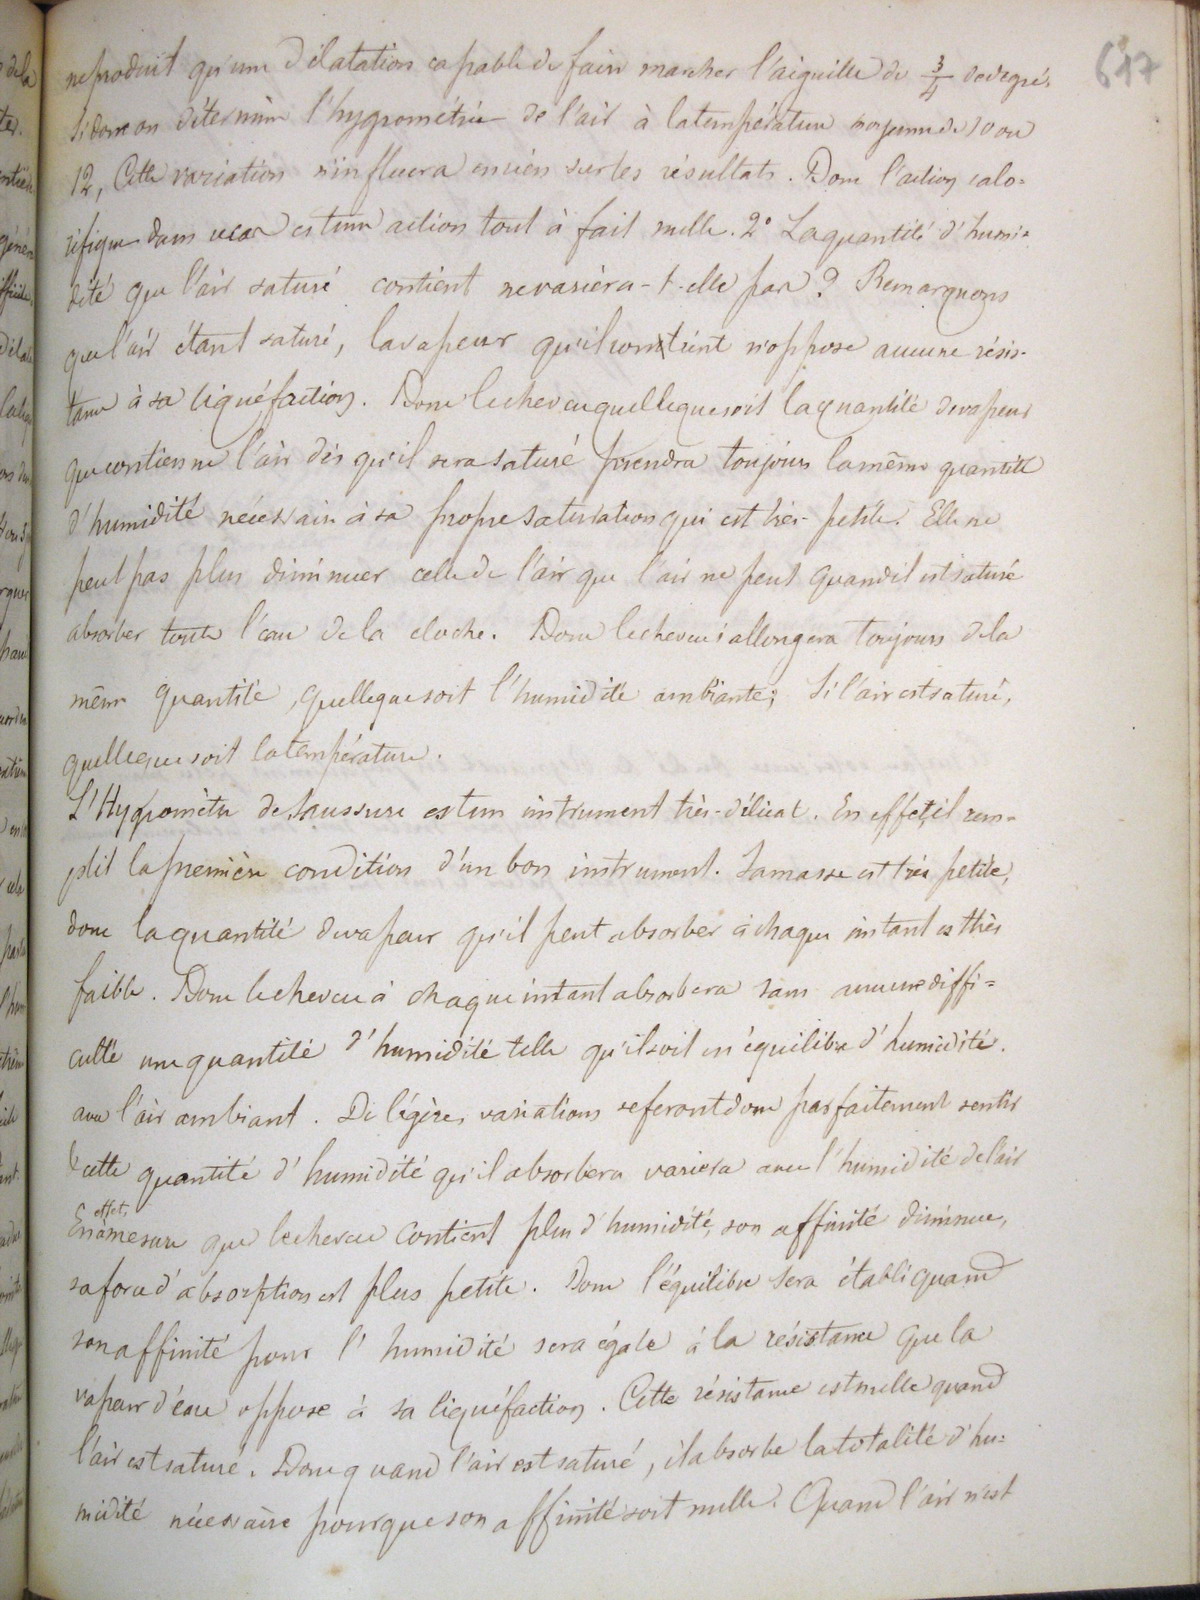 617
ne produit qu'une dilatation capable de faire marcher l'aiguille de 3/4 de degré.
Si donc on détermine l'hygrométrie de l'air à la température moyenne de 10 ou
12, Cette variation n'influera en rien sur les résultats. Donc l'action calo=
rifique dans ce cas est une action tout à fait nulle. 2° La quantité d'humi=
dité que l'air saturé contient ne variera-t-elle pas ? Remarquons
que l'air étant saturé, la vapeur qu'il contient n'oppose aucune résis-
tance à sa liquéfaction. Donc le cheveu quelle que soit la quantité de vapeur
que contienne l'air dès qu'il sera saturé prendra toujours la même quantité
d'humidité nécessaire à sa propre saturation qui est très-petite. Elle ne
peut pas plus diminuer celle de l'air que l'air ne peut quand il est saturé
absorber toute l'eau de la cloche. Donc le cheveu s'allongera toujours de la
même quantité, quelle que soit l'humidité ambiante; Si l'air est saturé,
quelle que soit la température.
L'Hygromètre de Saussure est un instrument très-délicat. En effet, il rem-
plit la première condition d'un bon instrument. Sa masse est très petite,
donc la quantité de vapeur qu'il peut absorber à chaque instant est très
faible. Donc le cheveu à chaque instant absorbera sans aucune diffi=
culté une quantité d'humidité telle qu'il soit en équilibre d'humidité.
avec l'air ambiant. De légères variations se feront donc parfaitement sentir
cette quantité d'humidité qu'il absorbera variera avec l'humidité de l'air
En effet, à mesure que le cheveu contient plus d'humidité, son affinité diminue,
sa force d'absorption est plus petite. Donc l'équilibre sera établi quand
son affinité pour l'humidité sera égale à la résistance que la
vapeur d'eau oppose à sa liquéfaction. Cette résistance est nulle quand
l'air est saturé. Donc quand l'air est saturé, il absorbe la totalité d'hu=
midité nécessaire pour que son affinité soit nulle. Quand l'air n'est